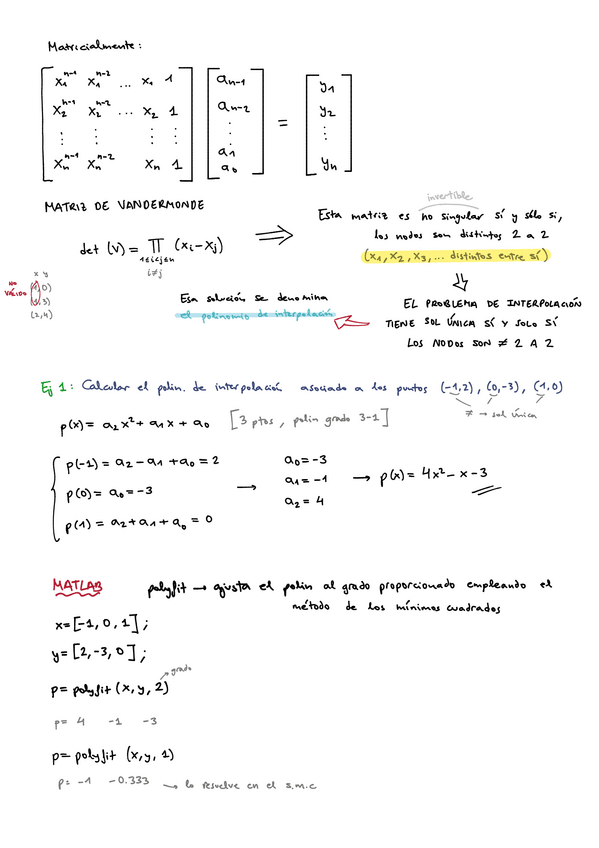 Matricialmente:
x₁ⁿ⁻¹ x₁ⁿ⁻² ... x₁ 1 aₙ₋₁ y₁
x₂ⁿ⁻¹ x₂ⁿ⁻² ... x₂ 1 aₙ₋₂ = y₂
⋮ ⋮ ⋮ ⋮ ⋮ ⋮
xₙⁿ⁻¹ xₙⁿ⁻² xₙ 1 a₁ a₀ yₙ
MATRIZ DE VANDERMONDE
det (V) = ∏ (xᵢ-xⱼ)
1≤i<j≤n
i≠j
⇒
invertible
Esta matriz es no singular sí y sólo si,
los nodos son distintos 2 a 2
(x₁, x₂, x₃, ... distintos entre sí)
⇓
EL PROBLEMA DE INTERPOLACIÓN
TIENE SOL ÚNICA SÍ Y SOLO SÍ
LOS NODOS SON ≠ 2 A 2
Esa solución se denomina
el polinomio de interpolación
x y
NO VÁLIDO (1,0)
(1,3)
(2,4)
Ej 1: Calcular el polin. de interpolación asociado a los puntos (-1,2), (0,-3), (1,0)
≠ → sol única
p(x) = a₂x² + a₁x + a₀ [3 ptos, polin grado 3-1]
p(-1) = a₂ - a₁ + a₀ = 2
p(0) = a₀ = -3
p(1) = a₂ + a₁ + a₀ = 0
→
a₀ = -3
a₁ = -1
a₂ = 4
→ p(x) = 4x² - x - 3
MATLAB polyfit → ajusta el polin al grado proporcionado empleando el
método de los mínimos cuadrados
x = [-1, 0, 1];
y = [2, -3, 0];
p = polyfit (x, y, 2) grado
p = 4 -1 -3
p = polyfit (x, y, 1)
p = -1 -0.333 → lo resuelve en el s.m.c